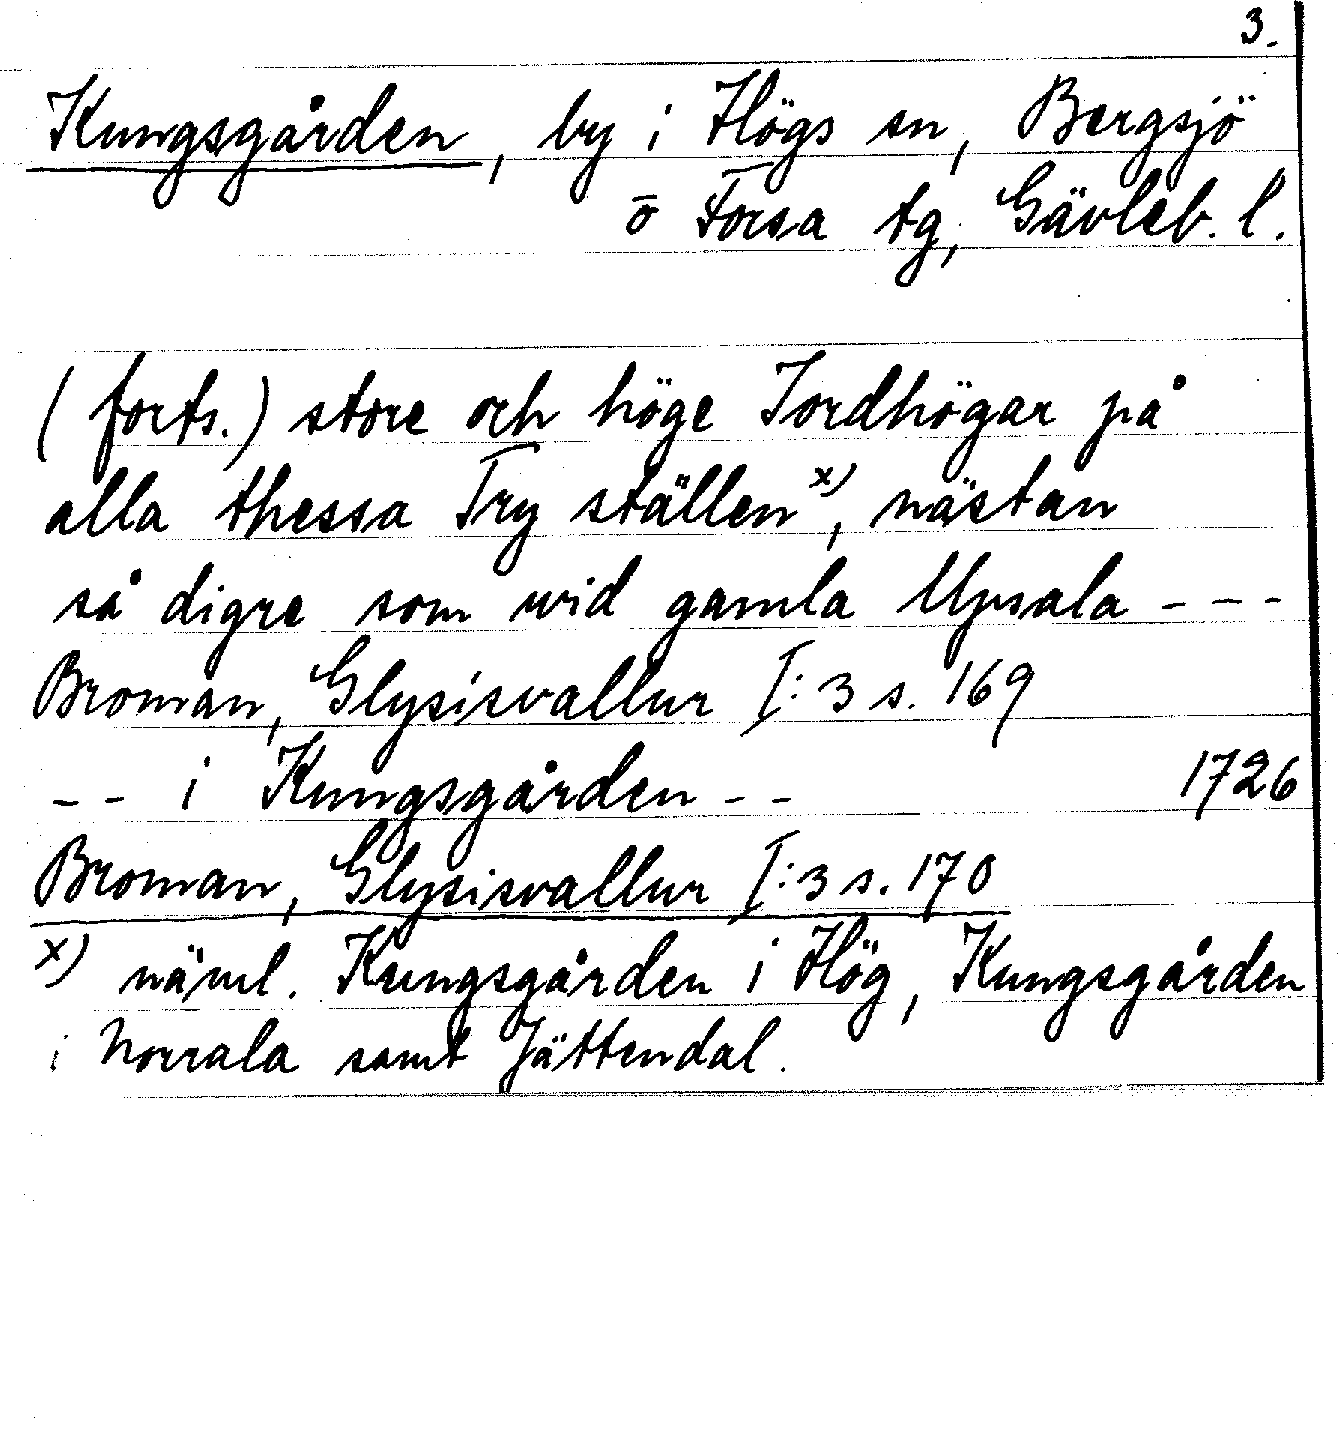 3.
Kungsgården, by i Högs sn, Bergsjö
o Forsa tg, Gävleb. l.
(forts.) store och höge Jordhögar på
alla thessa Try ställen x), nästan
så digre som wid gamla Upsala - - -
Broman, Glysisvallur I:3 s. 169
- - i Kungsgården - - 1726
Broman, Glysisvallur I:3 s. 170
x) näml. Kungsgården i Hög, Kungsgården
i Norrala samt Jättendal.